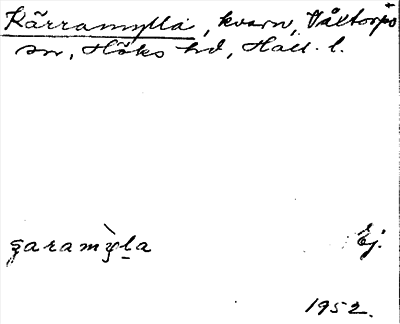 Kärramylla, kvarn, Våxtorps
sn, Höks hd, Hall. l.
şaramy̆la Ej.
1952.